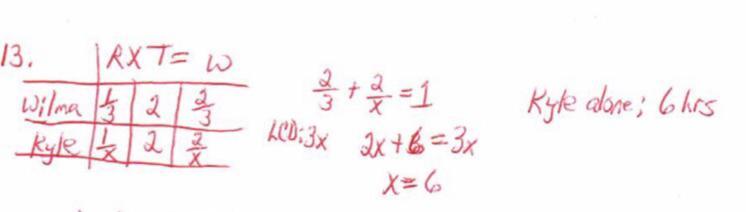 13. R X T = W
Wilma 1/3 2 2/3
Kyle 1/x 2 2/x
2/3 + 2/x = 1
LCD: 3x 2x + 6 = 3x
x = 6
Kyle alone; 6 hrs